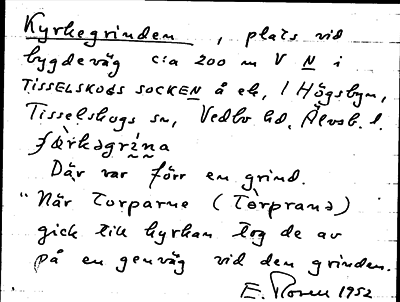 Kyrkegrinden, plats vid
bygdeväg c:a 200 m V N i
TISSELSKOGS SOCKEN å ek, 1 Högsbyn,
Tisselskogs sn, Vedbo hd, Älvsb. l.
Där var förr en grind.
"När Torparne (Tòrpranə)
gick till kyrkan tog de av
på en genväg vid den grinden.
E. Rosen 1952